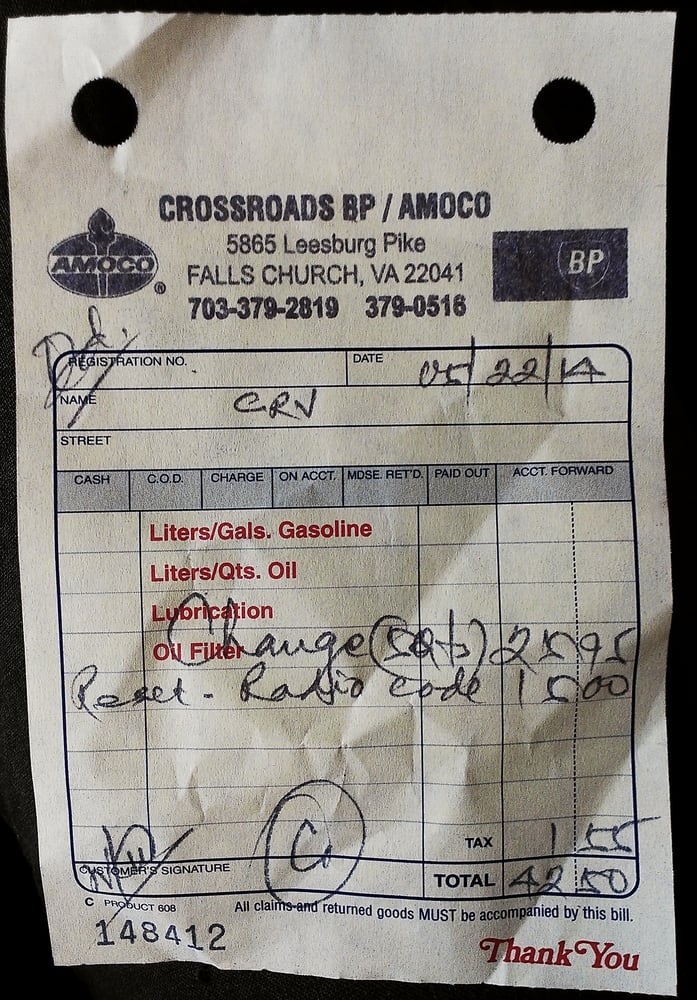 CROSSROADS BP / AMOCO
AMOCO ®
5865 Leesburg Pike
BP
FALLS CHURCH, VA 22041
703-379-2819 379-0516
REGISTRATION NO. DATE 05/22/14
NAME CRV
STREET
CASH C.O.D. CHARGE ON ACCT. MDSE. RET'D. PAID OUT ACCT. FORWARD
Liters/Gals. Gasoline
Liters/Qts. Oil
Lubrication
Oil Filter Change (5qts) 25 95
Reset - Radio code 15 00
TAX 1 55
CUSTOMER'S SIGNATURE
TOTAL 42 50
C PRODUCT 608 All claims and returned goods MUST be accompanied by this bill.
148412
Thank You